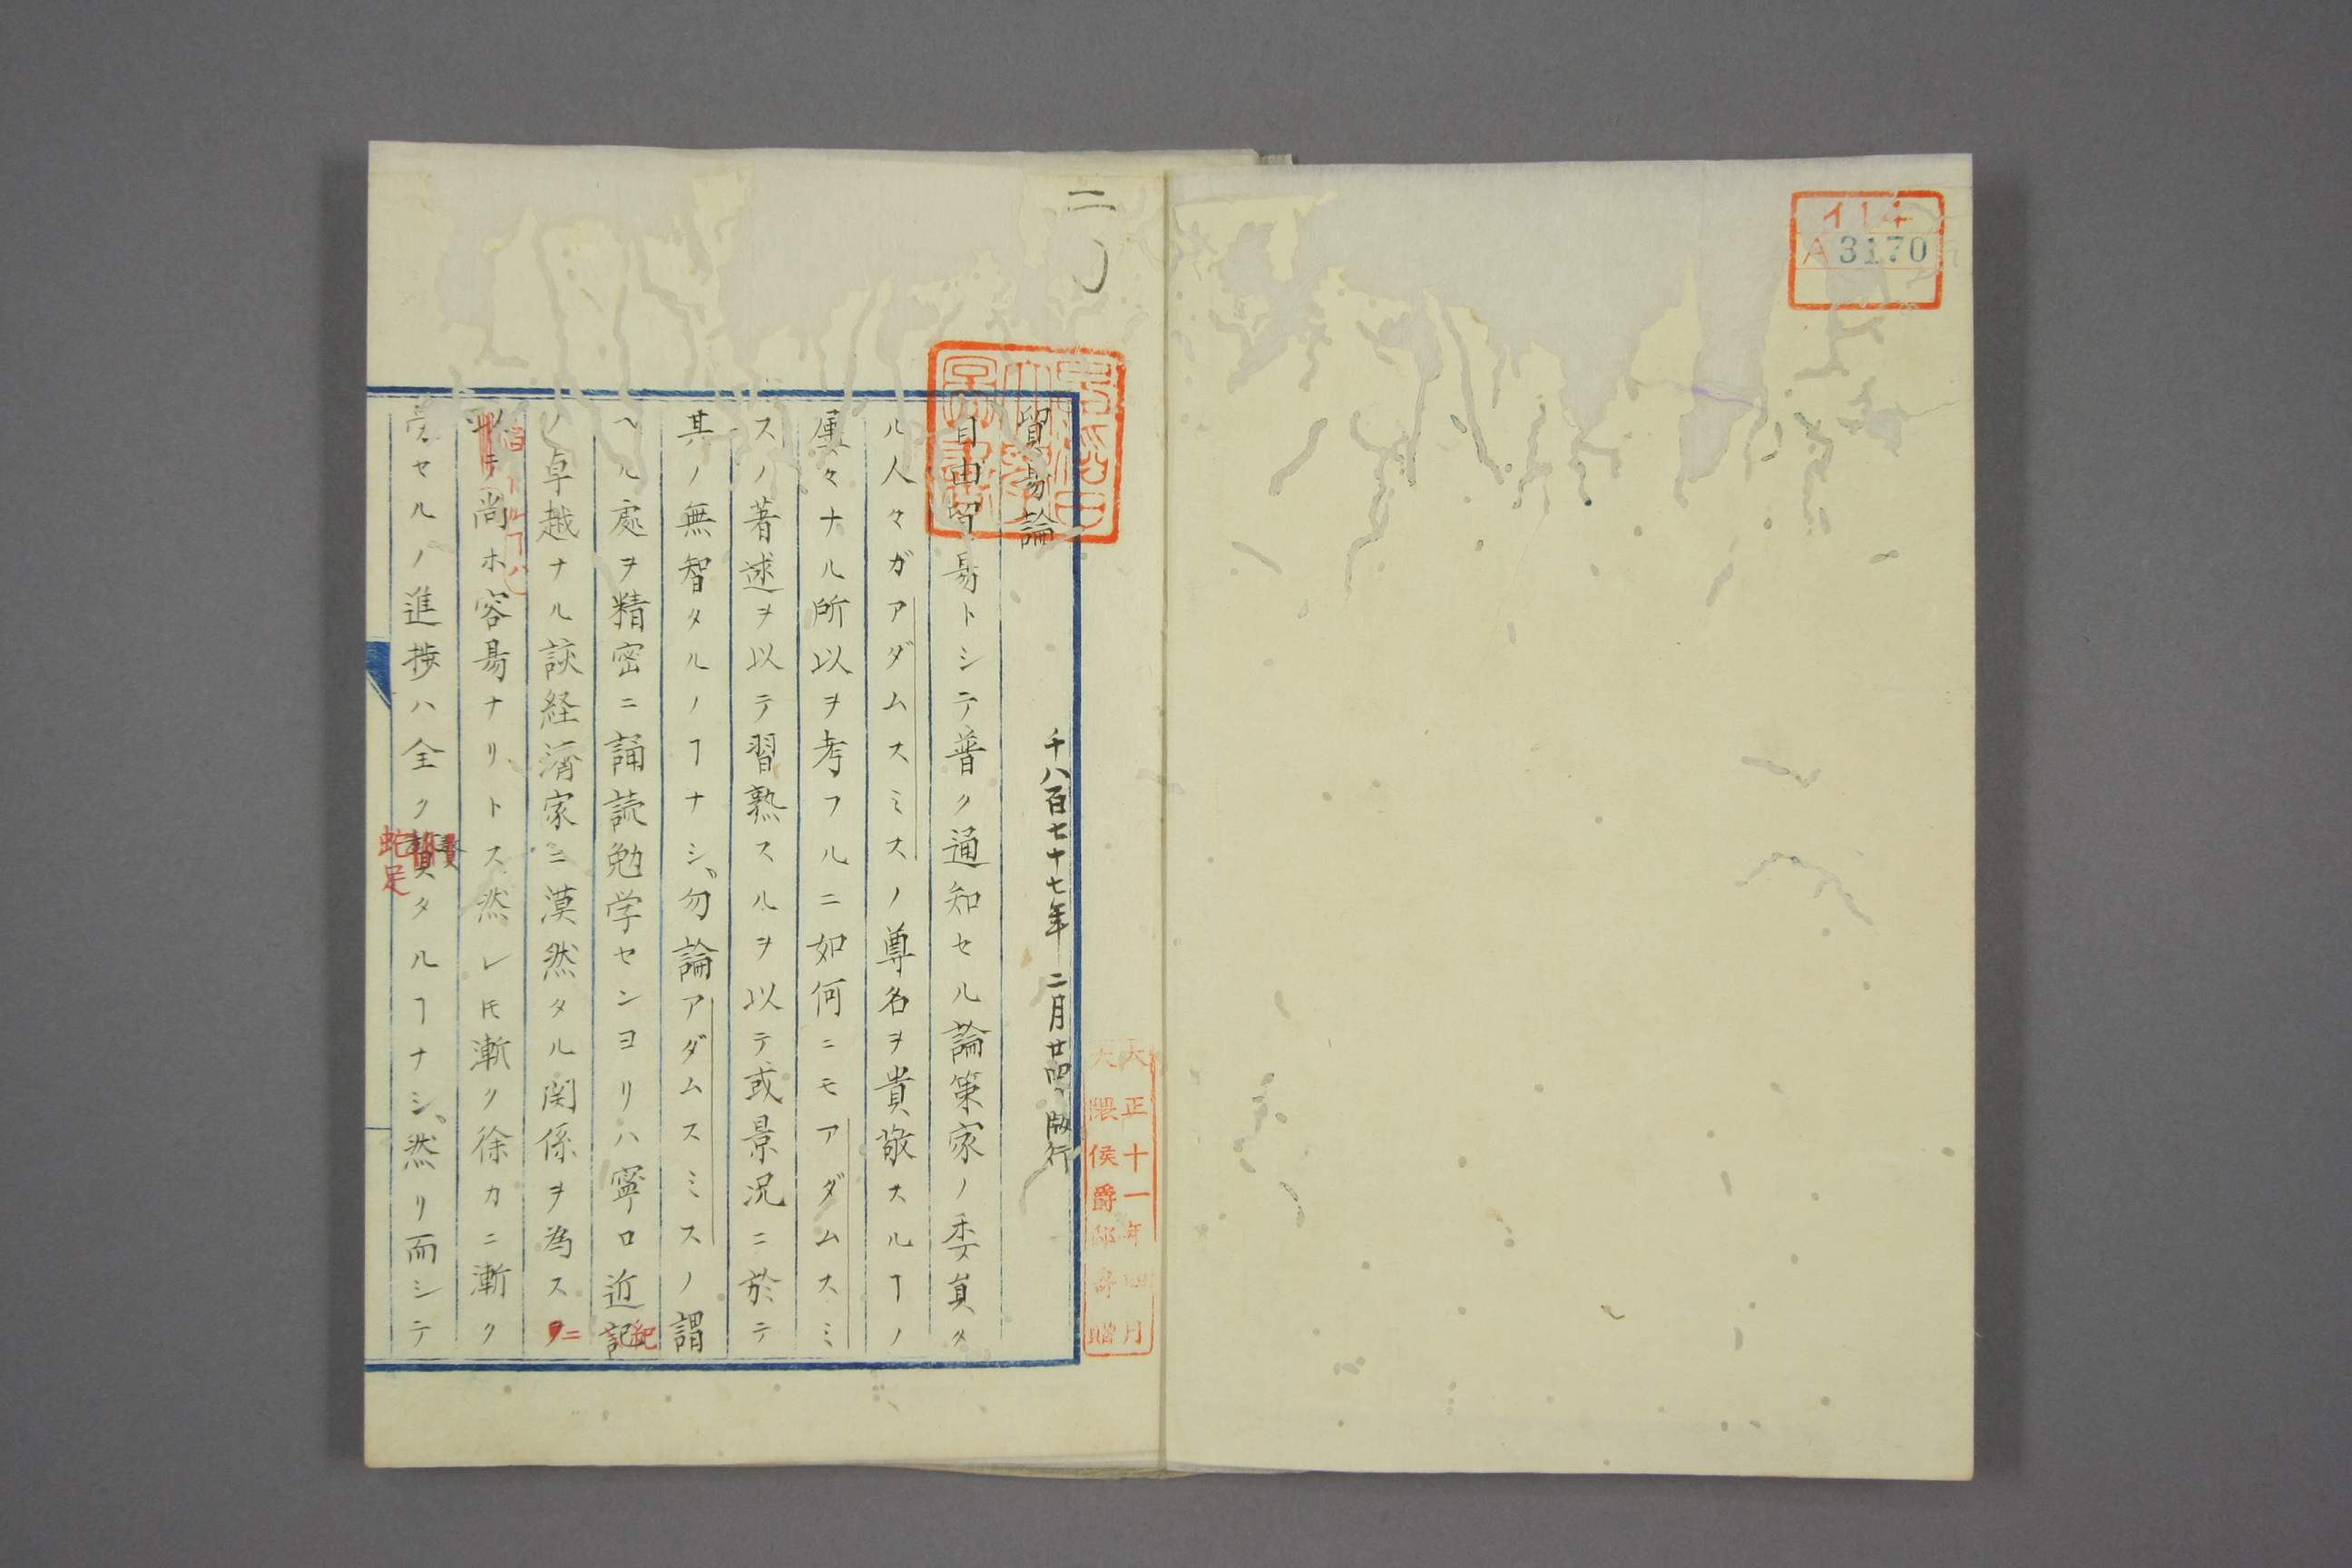 イ14
A3170
二
早稲田大学図書
大正十一年四月
大隈侯爵邸寄贈
貿易論
千八百七十七年 二月廿四日版行
自由貿易トシテ普ク通知セル論策家ノ委員タ
ル人々ガアダムスミスノ尊名ヲ貴敬スルヿノ
屡々ナル所以ヲ考フルニ如何ニモアダムスミ
スノ著述ヲ以テ習熟スルヲ以テ或景況ニ於テ
其ノ無智タルノヿナシ、勿論アダムスミスノ謂
ヘル處ヲ精密ニ誦読勉学センヨリハ寧ロ近記
紀
ノ卓越ナル該経済家ニ漠然タル関係ヲ為スヲ
ニ
以テ尚ホ容易ナリトス然レ𪜈漸ク徐カニ漸ク
セルノ進捗ハ全ク賛タルヿナシ、然リ而シテ
蛇足